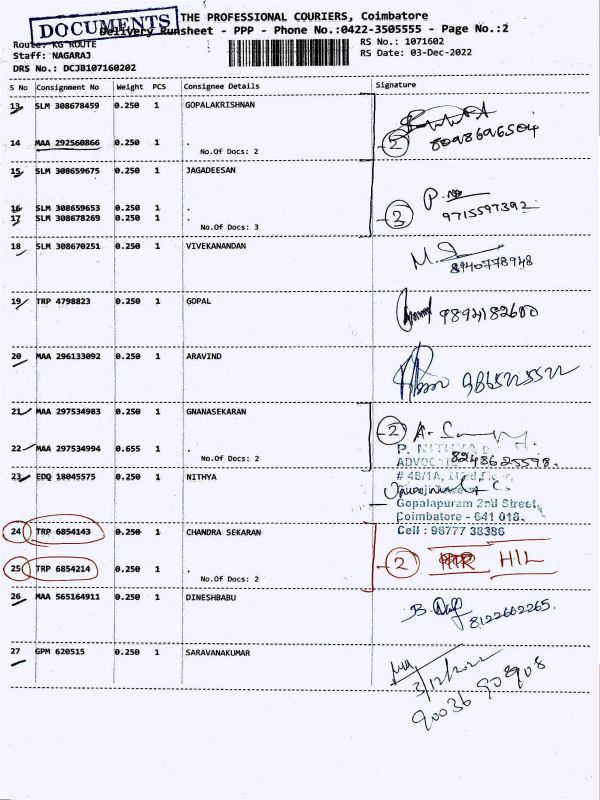 DOCUMENTS
THE PROFESSIONAL COURIERS, Coimbatore
Delivery Runsheet - PPP - Phone No.:0422-3505555 - Page No.:2
Route: KG ROUTE RS No.: 1071602
Staff: NAGARAJ RS Date: 03-Dec-2022
DRS No.: DCJB107160202
S No Consignment No Weight PCS Consignee Details Signature
13 SLM 308678459 0.250 1 GOPALAKRISHNAN
14 MAA 292560866 0.250 1 . 2 8098696504
No.Of Docs: 2
15 SLM 308659675 0.250 1 JAGADEESAN
16 SLM 308659653 0.250 1 . 3 9715597392
17 SLM 308678269 0.250 1 .
No.Of Docs: 3
18 SLM 308670251 0.250 1 VIVEKANANDAN
8940778948
19 TRP 4798823 0.250 1 GOPAL 9894182600
20 MAA 296133092 0.250 1 ARAVIND
9865225522
21 MAA 297534983 0.250 1 GNANASEKARAN
2
22 MAA 297534994 0.655 1 .
No.Of Docs: 2
ADVOCATE 8248625598.
23 EDQ 18045575 0.250 1 NITHYA
Gopalapuram 2nd Street,
Coimbatore - 641 018.
24 TRP 6854143 0.250 1 CHANDRA SEKARAN Cell : 98777 38386
25 TRP 6854214 0.250 1 . 2 H/L
No.Of Docs: 2
26 MAA 565164911 0.250 1 DINESHBABU
8122662265.
27 GPM 620515 0.250 1 SARAVANAKUMAR
3/12/2022
90036 908908